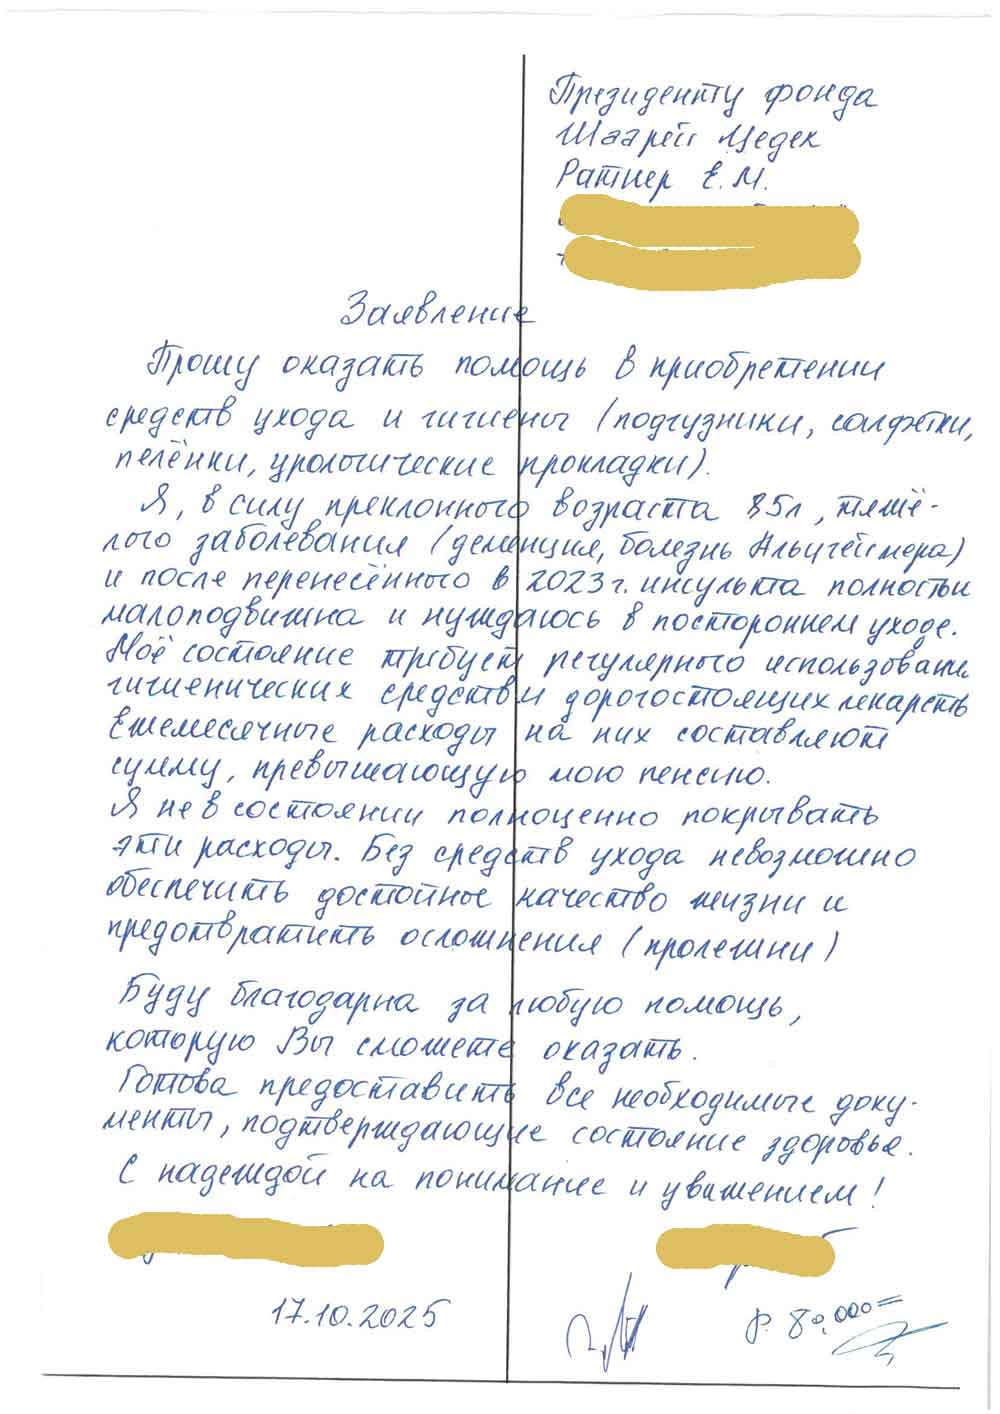 Президенту фонда
Шаарей Цедек
Ратнер Е.М.
Заявление
Прошу оказать помощь в приобретении
средств ухода и гигиены (подгузники, салфетки,
пелёнки, урологические прокладки).
Я, в силу преклонного возраста 85л, тяжё-
лого заболевания (деменция, болезнь Альцгеймера)
и после перенесённого в 2023г. инсульта полностью
малоподвижна и нуждаюсь в постороннем уходе.
Моё состояние требует регулярного использовани
гигиенических средств и дорогостоящих лекарств
Ежемесячные расходы на них составляют
сумму, превышающую мою пенсию.
Я не в состоянии полноценно покрывать
эти расходы. Без средств ухода невозможно
обеспечить достойное качество жизни и
предотвратить осложнения (пролежни)
Буду благодарна за любую помощь,
которую Вы сможете оказать.
Готова предоставить все необходимые доку-
менты, подтверждающие состояние здоровья.
С надеждой на понимание и уважением!
17.10.2025
р. 80,000=